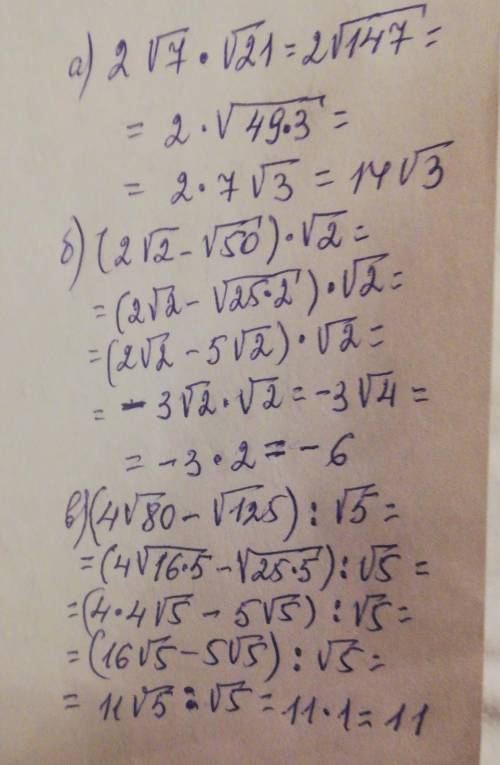 а) 2√7 · √21 = 2√147 =
= 2 · √49·3 =
= 2 · 7√3 = 14√3
б) (2√2 - √50) · √2 =
= (2√2 - √25·2) · √2 =
= (2√2 - 5√2) · √2 =
= - 3√2 · √2 = -3√4 =
= -3 · 2 = - 6
в) (4√80 - √125) : √5 =
= (4√16·5 - √25·5) : √5 =
= (4·4√5 - 5√5) : √5 =
= (16√5 - 5√5) : √5 =
= 11√5 : √5 = 11·1 = 11